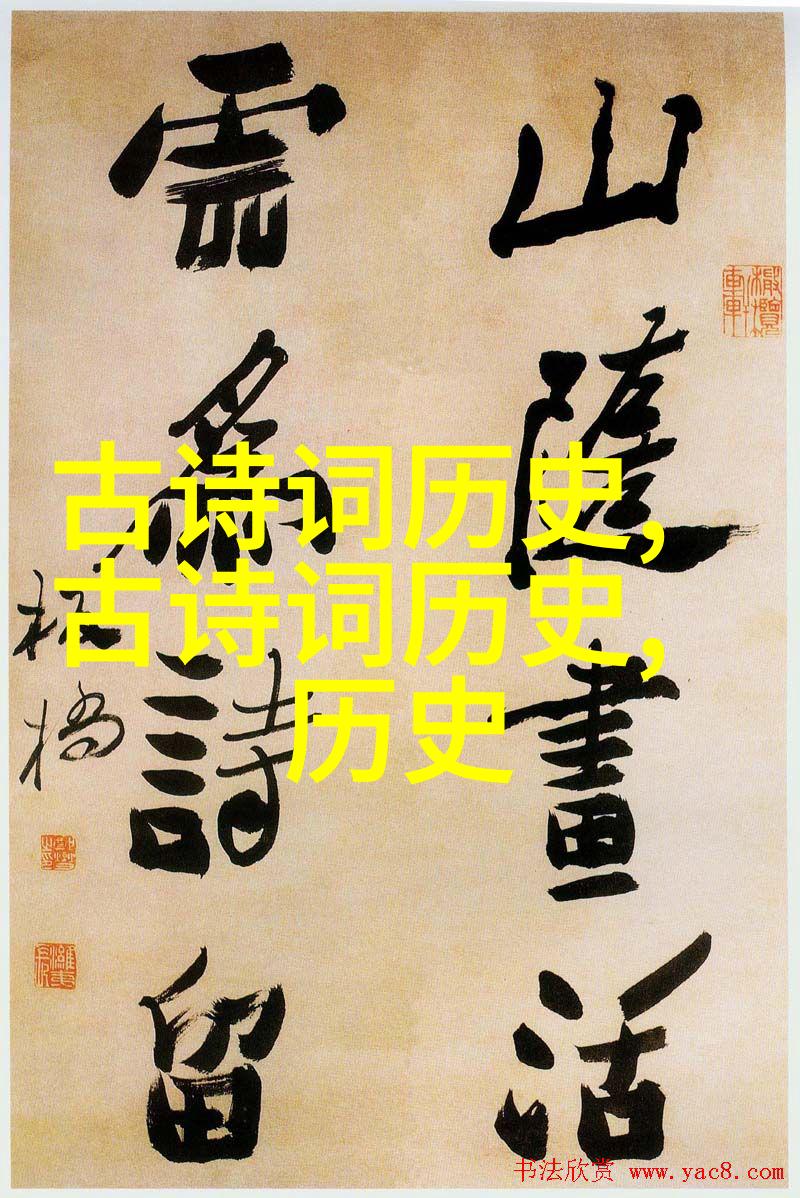 古诗词历史,
古诗词历史,
历史
山隨畫活
雲為詩留
板橋
橄欖軒
书法欣赏 www.yac8.com